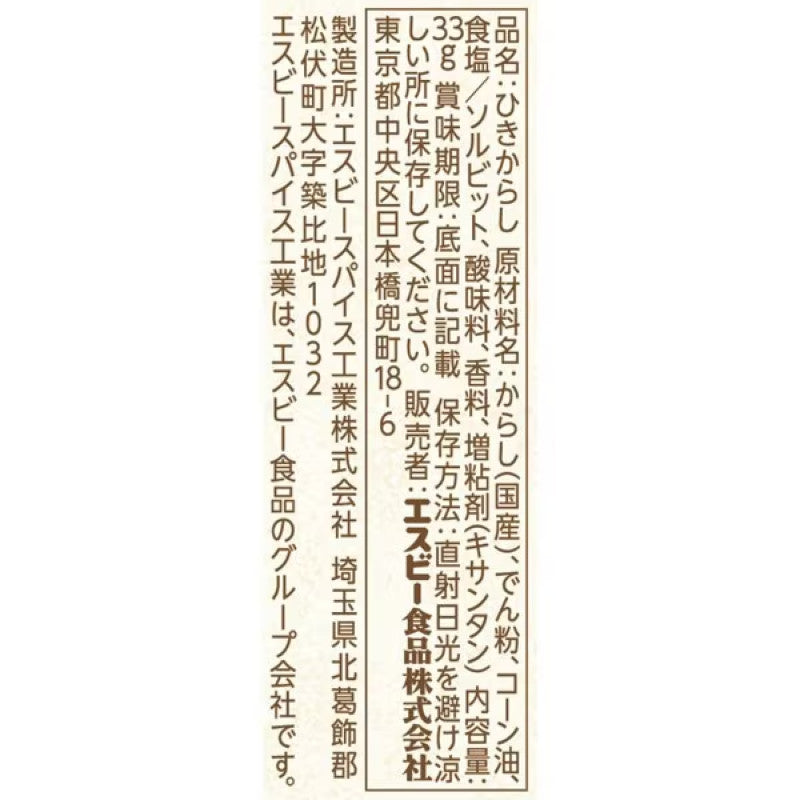 品名:ひきからし 原材料名:からし(国産)、でん粉、コーン油、
食塩/ソルビット、酸味料、香料、増粘剤(キサンタン) 内容量:
33g 賞味期限:底面に記載 保存方法:直射日光を避け涼
しい所に保存してください。 販売者:エスビー食品株式会社
東京都中央区日本橋兜町18-6
製造所:エスビースパイス工業株式会社 埼玉県北葛飾郡
松伏町大字築比地1032
エスビースパイス工業は、エスビー食品のグループ会社です。